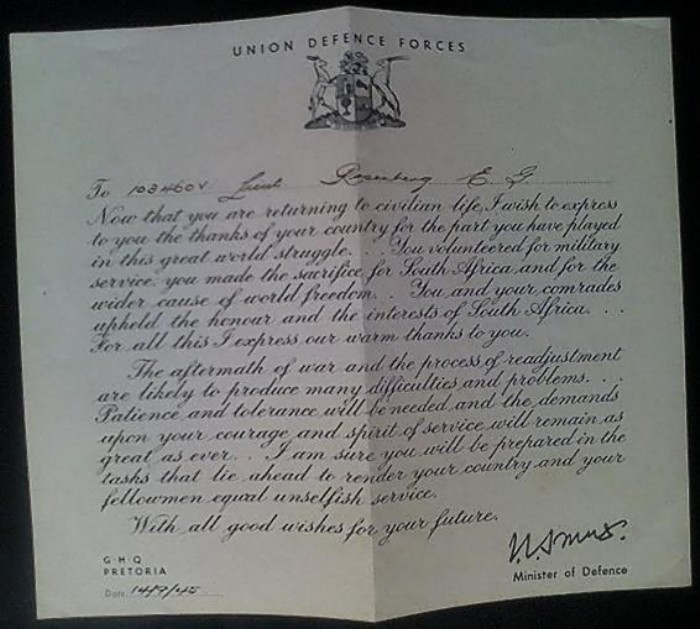 UNION DEFENCE FORCES
To 103460V Lieut Rosenberg E. G.
Now that you are returning to civilian life, I wish to express
to you the thanks of your country for the part you have played
in this great world struggle. . . You volunteered for military
service, you made the sacrifice for South Africa and for the
wider cause of world freedom. . . You and your comrades
upheld the honour and the interests of South Africa. . .
For all this I express our warm thanks to you.
The aftermath of war and the process of readjustment
are likely to produce many difficulties and problems. . .
Patience and tolerance will be needed and the demands
upon your courage and spirit of service will remain as
great as ever. . . I am sure you will be prepared in the
tasks that lie ahead to render your country and your
fellowmen equal unselfish service.
With all good wishes for your future.
G·H·Q
PRETORIA
Date 14/9/45
Minister of Defence